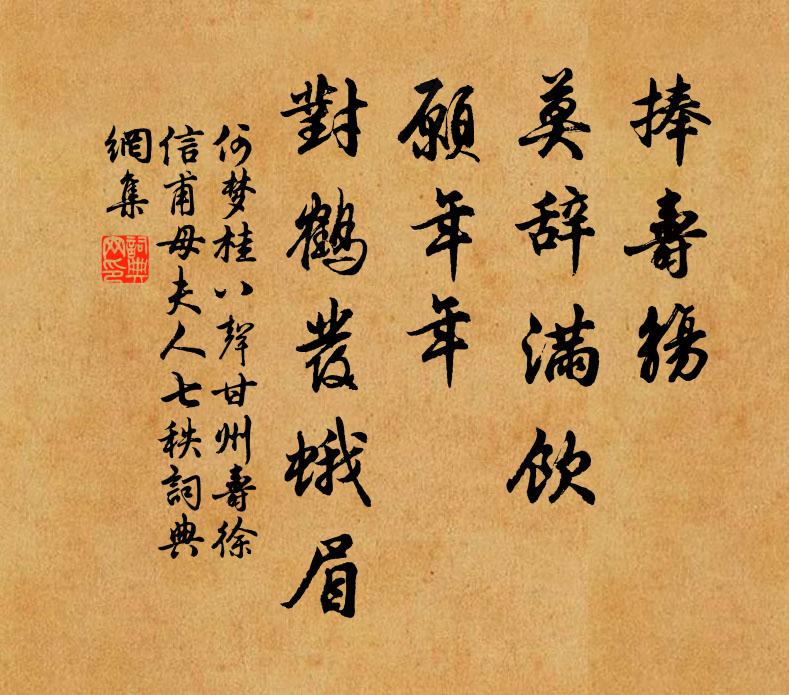 捧壽觴
莫辞滿飲
願年年
對鶴發蛾眉
何梦桂八聲甘州壽徐
信甫母夫人七秩詞典
網集
詞典
网印